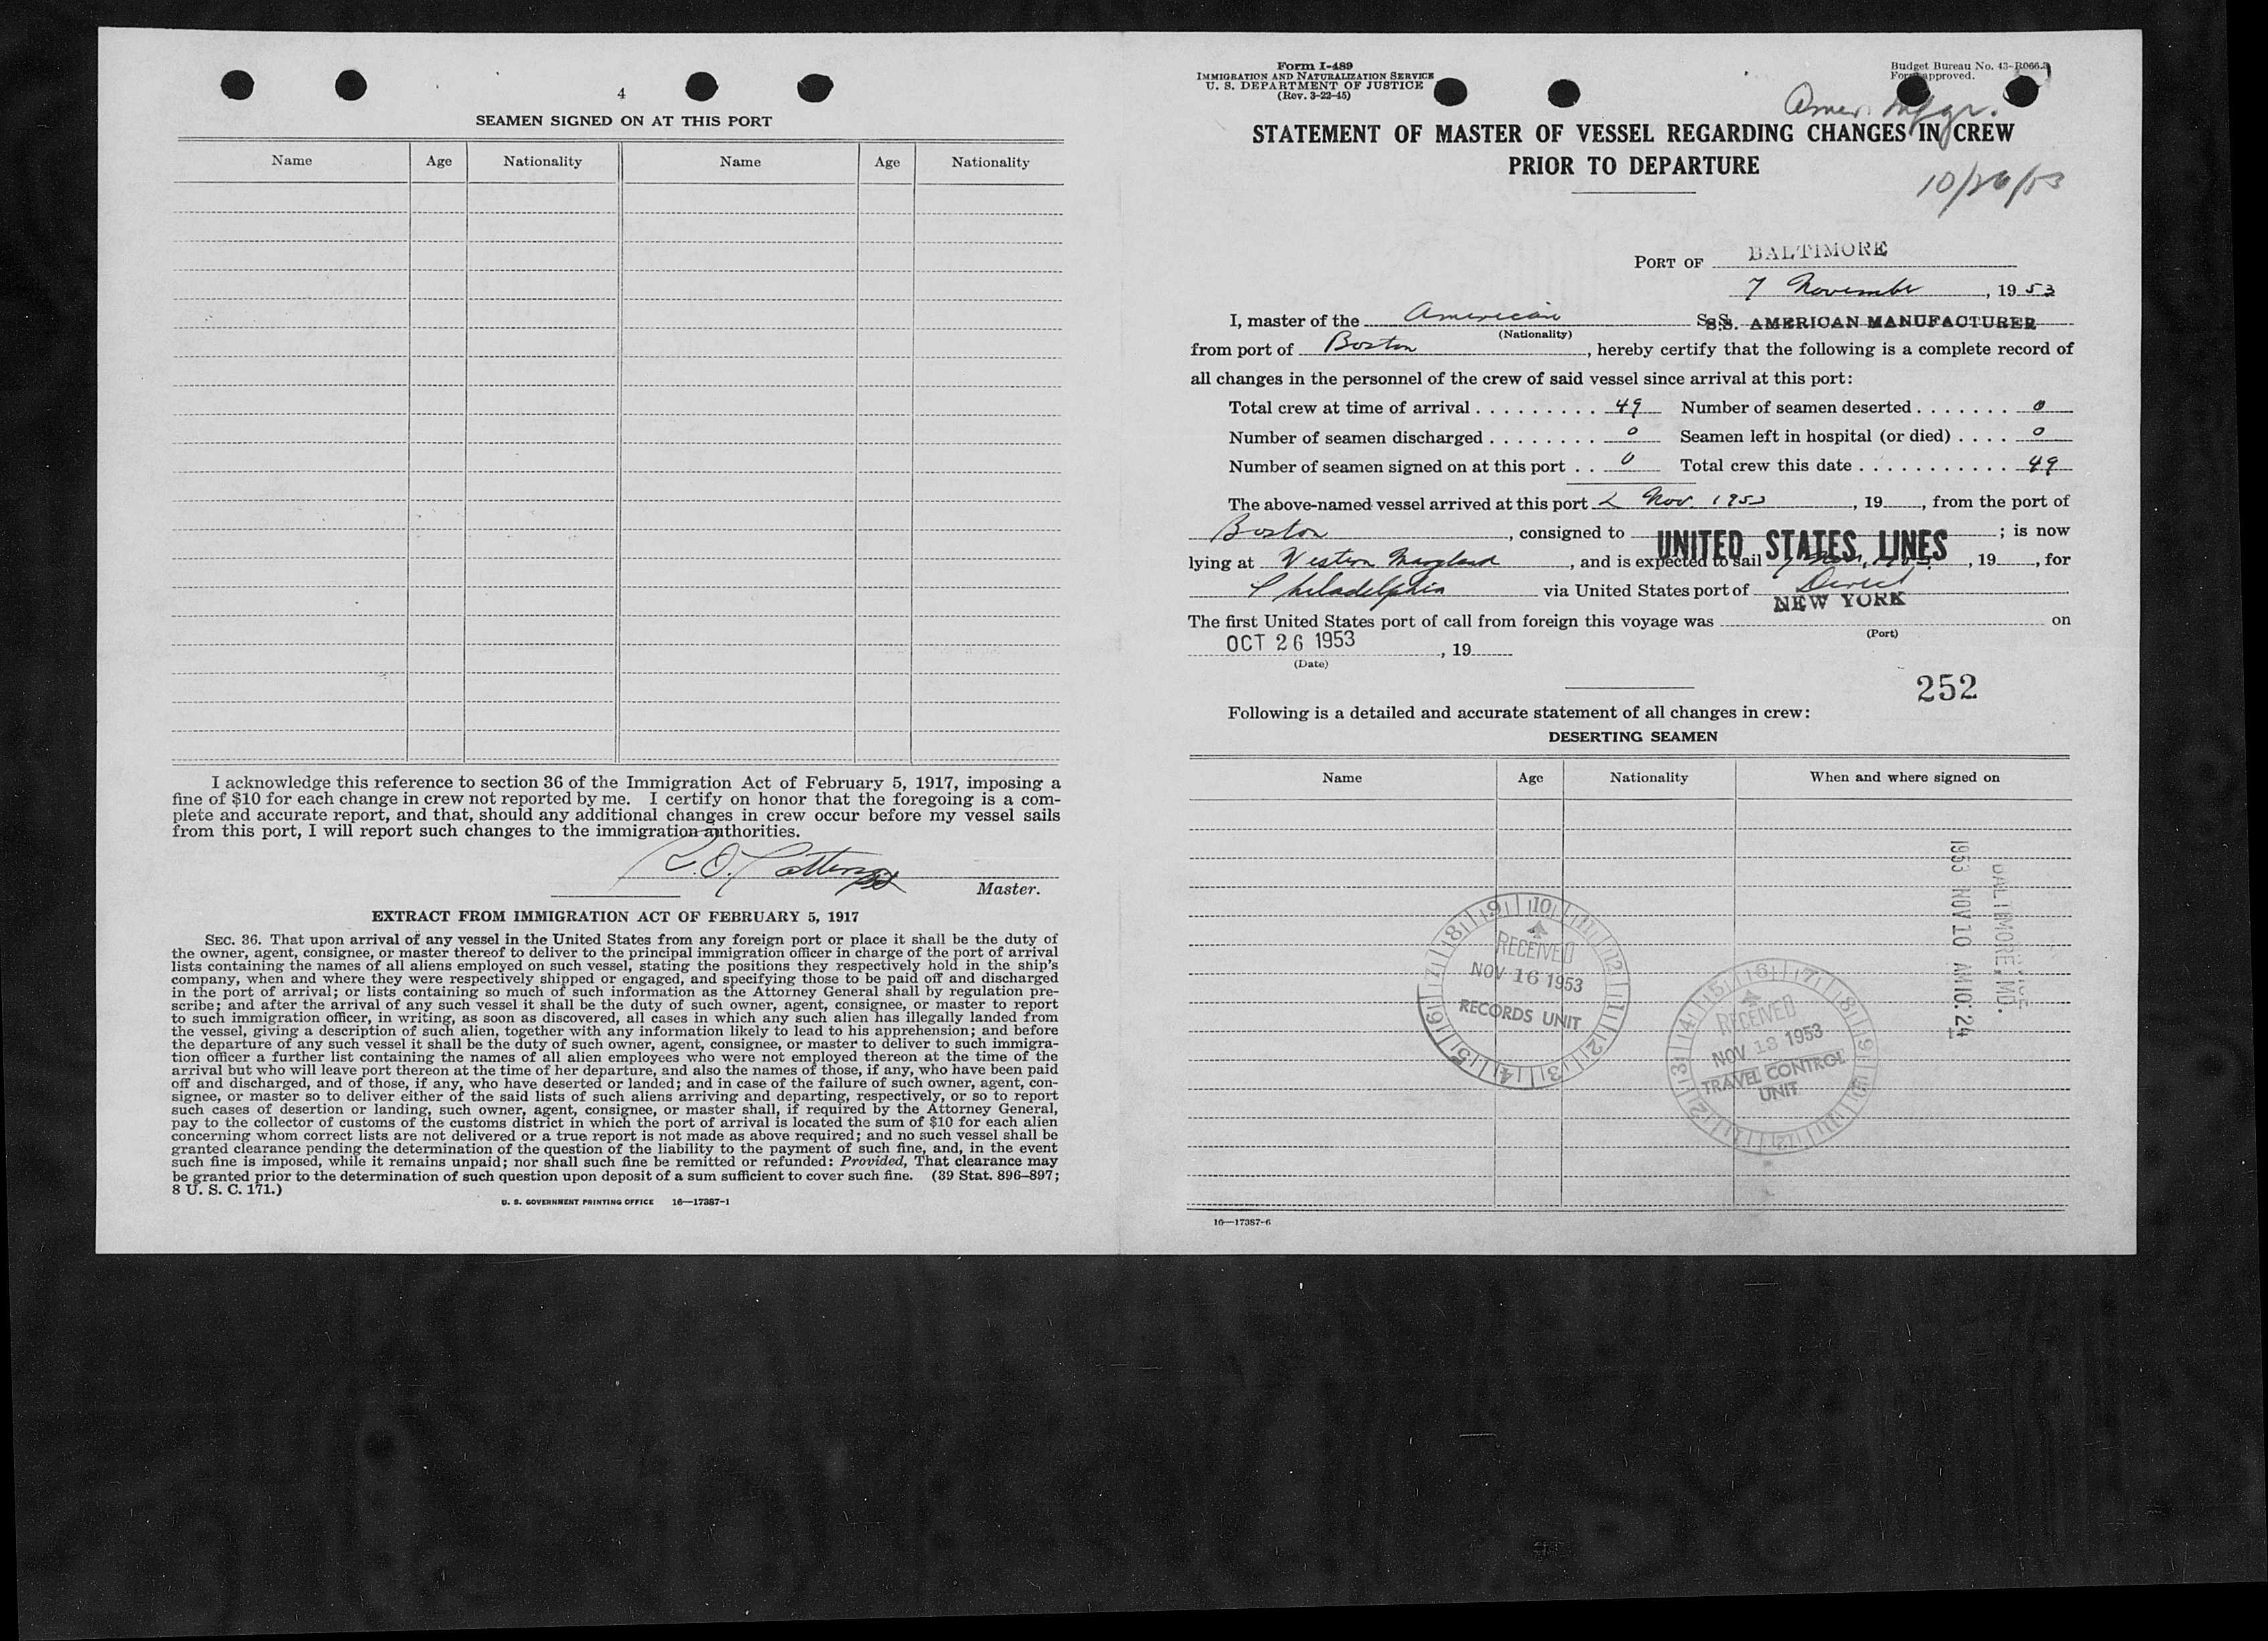 4
SEAMEN SIGNED ON AT THIS PORT
Name Age Nationality Name Age Nationality
I acknowledge this reference to section 36 of the Immigration Act of February 5, 1917, imposing a
fine of $10 for each change in crew not reported by me. I certify on honor that the foregoing is a com-
plete and accurate report, and that, should any additional changes in crew occur before my vessel sails
from this port, I will report such changes to the immigration authorities.
Master.
EXTRACT FROM IMMIGRATION ACT OF FEBRUARY 5, 1917
SEC. 36. That upon arrival of any vessel in the United States from any foreign port or place it shall be the duty of
the owner, agent, consignee, or master thereof to deliver to the principal immigration officer in charge of the port of arrival
lists containing the names of all aliens employed on such vessel, stating the positions they respectively hold in the ship's
company, when and where they were respectively shipped or engaged, and specifying those to be paid off and discharged
in the port of arrival; or lists containing so much of such information as the Attorney General shall by regulation pre-
scribe; and after the arrival of any such vessel it shall be the duty of such owner, agent, consignee, or master to report
to such immigration officer, in writing, as soon as discovered, all cases in which any such alien has illegally landed from
the vessel, giving a description of such alien, together with any information likely to lead to his apprehension; and before
the departure of any such vessel it shall be the duty of such owner, agent, consignee, or master to deliver to such immigra-
tion officer a further list containing the names of all alien employees who were not employed thereon at the time of the
arrival but who will leave port thereon at the time of her departure, and also the names of those, if any, who have been paid
off and discharged, and of those, if any, who have deserted or landed; and in case of the failure of such owner, agent, con-
signee, or master so to deliver either of the said lists of such aliens arriving and departing, respectively, or so to report
such cases of desertion or landing, such owner, agent, consignee, or master shall, if required by the Attorney General,
pay to the collector of customs of the customs district in which the port of arrival is located the sum of $10 for each alien
concerning whom correct lists are not delivered or a true report is not made as above required; and no such vessel shall be
granted clearance pending the determination of the question of the liability to the payment of such fine, and, in the event
such fine is imposed, while it remains unpaid; nor shall such fine be remitted or refunded: Provided, That clearance may
be granted prior to the determination of such question upon deposit of a sum sufficient to cover such fine. (39 Stat. 896–897;
8 U. S. C. 171.)
U. S. GOVERNMENT PRINTING OFFICE 16—17387-1
Form I-489
IMMIGRATION AND NATURALIZATION SERVICE
U. S. DEPARTMENT OF JUSTICE
(Rev. 3-22-45)
Budget Bureau No. 43-R066.
Form approved.
Amer. Mfgr.
STATEMENT OF MASTER OF VESSEL REGARDING CHANGES IN CREW
PRIOR TO DEPARTURE
10/26/53
PORT OF BALTIMORE
7 November, 1953
I, master of the American S.S. AMERICAN MANUFACTURER
(Nationality)
from port of Boston, hereby certify that the following is a complete record of
all changes in the personnel of the crew of said vessel since arrival at this port:
Total crew at time of arrival 49 Number of seamen deserted 0
Number of seamen discharged 0 Seamen left in hospital (or died) 0
Number of seamen signed on at this port 0 Total crew this date 49
The above-named vessel arrived at this port 2 Nov. 1953, 19, from the port of
Boston, consigned to UNITED STATES LINES; is now
lying at Western Maryland, and is expected to sail 7 Nov, 1953, 19, for
Philadelphia via United States port of Direct
The first United States port of call from foreign this voyage was NEW YORK on
(Port)
OCT 26 1953, 19
(Date)
252
Following is a detailed and accurate statement of all changes in crew:
DESERTING SEAMEN
Name Age Nationality When and where signed on
1953 NOV 10 AM 10:24
BALTIMORE, MD.
RECEIVED
NOV 16 1953
RECORDS UNIT
RECEIVED
NOV 18 1953
TRAVEL CONTROL
UNIT
16—17387-6